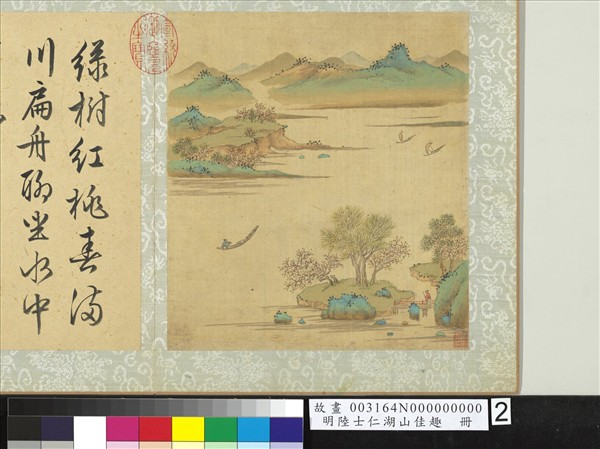 綠樹紅桃春滿
川扁舟聊坐水中
故畫 003164N000000000
明陸士仁湖山佳趣 冊
2